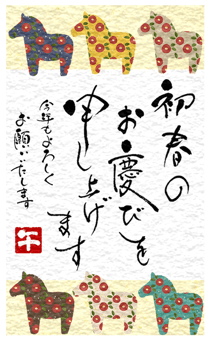 初春の
お慶びを
申し上げ
ます
今年もよろしく
お願いいたします
午